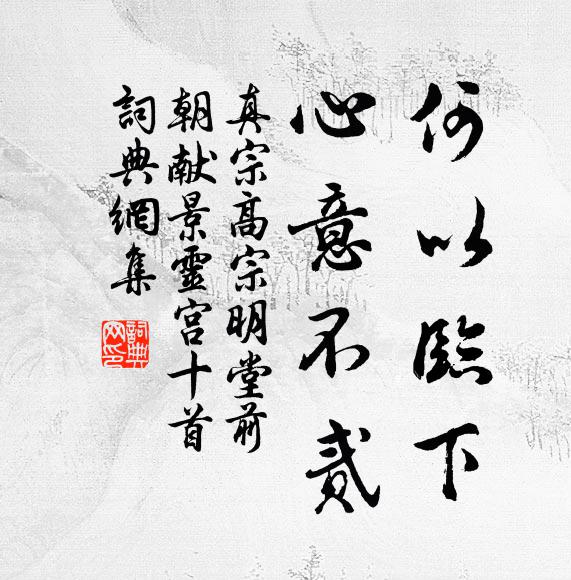 何以臨下
心意不貳
真宗高宗明堂前
朝献景靈宫十首
詞典網集
詞典網印